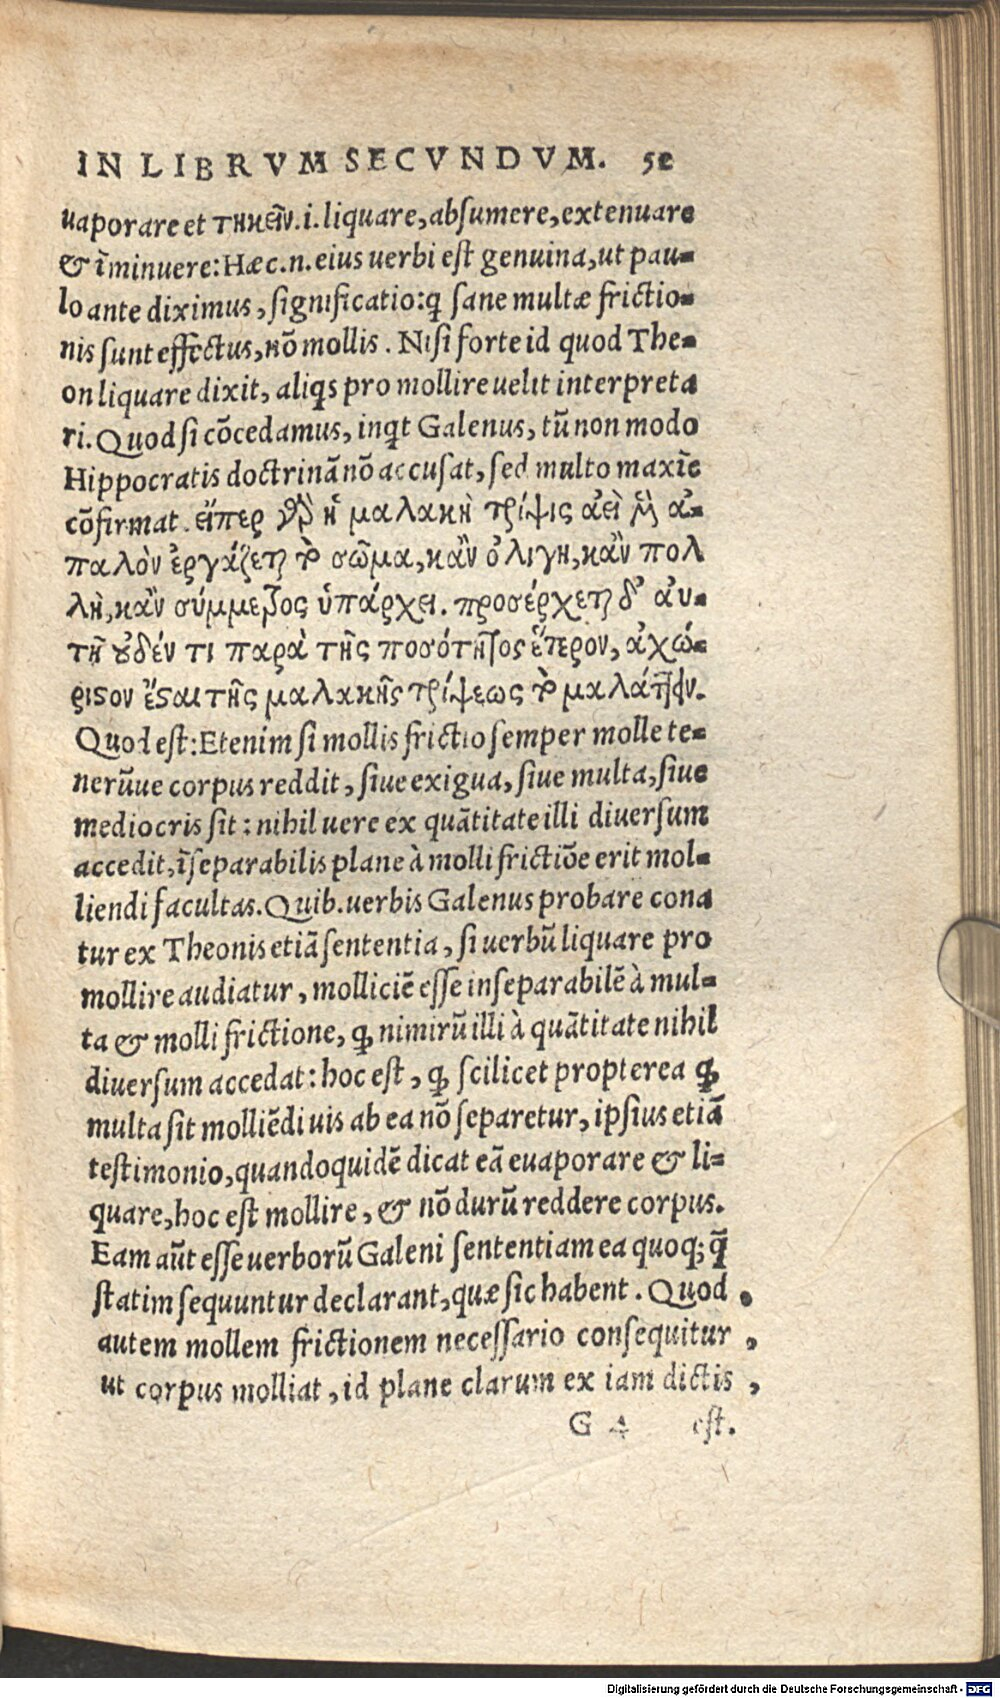 IN LIBRVM SECVNDVM. 52
uaporare et τηκεῖν.i.liquare,absumere,extenuare
& īminuere:Hæc.n.eius uerbi est genuina,ut pau-
lo ante diximus, significatio:ꝙ sane multæ frictio-
nis sunt effectus,nō mollis. Nisi forte id quod The-
on liquare dixit, aliqs pro mollire uelit interpreta
ri.Quod si cōcedamus, inqt Galenus, tū non modo
Hippocratis doctrinā nō accusat, sed multo maxīe
cōfirmat. εἴπερ γὰρ ἡ μαλακὴ τρίψις ἀεὶ μὲν ἁ-
παλὸν ἐργάζεται τὸ σῶμα,κἂν ὀλιγη,κἂν πολ
λὴ,κἂν σύμμετρος ὑπάρχει. προσέρχεται δ' ἀυ-
τῇ ουδέν τι παρὰ τῆς ποσότητος ἕτερον, ἀχώ-
ριστον ἔσαι τῆς μαλακῆς τρίψεως τὸ μαλάττειν.
Quod est:Etenim si mollis frictio semper molle te-
nerūue corpus reddit, siue exigua, siue multa,siue
mediocris sit: nihil uere ex quātitate illi diuersum
accedit,īseparabilis plane à molli frictiōe erit mol-
liendi facultas.Quib.uerbis Galenus probare cona
tur ex Theonis etiā sententia, si uerbū liquare pro
mollire audiatur, molliciē esse inseparabilē à mul-
ta & molli frictione, ꝙ nimirū illi à quātitate nihil
diuersum accedat: hoc est, ꝙ scilicet propterea ꝙ
multa sit molliēdi uis ab ea nō separetur, ipsius etiā
testimonio,quandoquidē dicat eā euaporare & li-
quare,hoc est mollire, & nō durū reddere corpus.
Eam aūt esse uerborū Galeni sententiam ea quoq; q̄
statim sequuntur declarant,quæ sic habent. Quod
autem mollem frictionem necessario consequitur,
ut corpus molliat, id plane clarum ex iam dictis,
G 4 est.
Digitalisierung gefördert durch die Deutsche Forschungsgemeinschaft - DFG